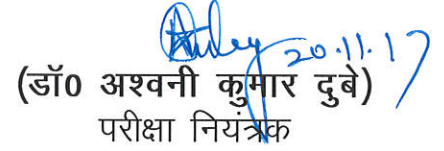 20.11.17
(डॉ0 अश्वनी कुमार दुबे)
परीक्षा नियंत्रक